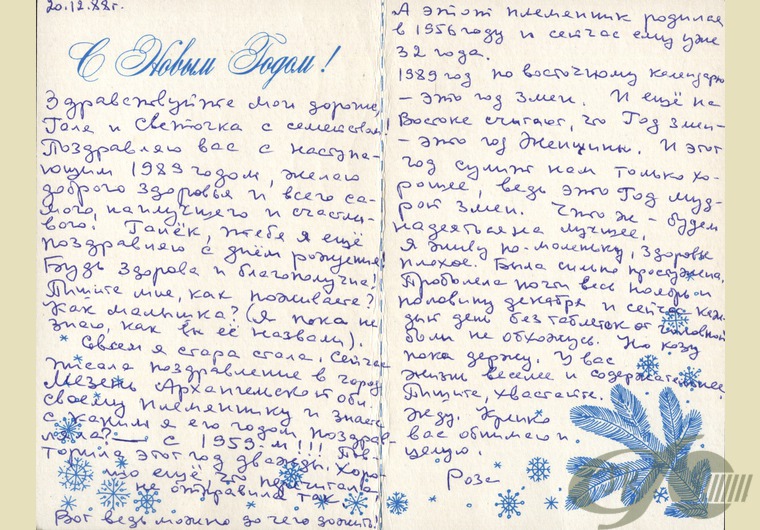 20.12.88г.
С Новым Годом!
Здравствуйте мои дорогие,
Галя и Светочка с семейством!
Поздравляю вас с наступа-
ющим 1989 годом, желаю
доброго здоровья и всего са-
мого, наилучшего и счастли-
вого! Галёк, тебя я ещё
поздравляю с днём рождения!
Будь здорова и благополучна!
Пишите мне, как поживаете?
Как малышка? (Я пока не
знаю, как вы её назвали).
Совсем я стара стала. Сейчас
писала поздравление в город
Мезень Архангельской обл.
своему племяннику и знаете
с каким я его годом поздрав-
ляла? — С 1959м!!! Пов-
торила этот год дважды. Хоро-
шо ещё, что перечитала
не отправила так
Вот ведь можно до чего дожить!
А этот племянник родился
в 1956 году и сейчас ему уже
32 года.
1989 год по восточному календарю
- это год Змеи. И ещё на
Востоке считают, что Год Змеи-
- это год Женщины. И этот
год сулит нам только хо-
рошее, ведь это Год муд-
рой Змеи. Что ж - будем
надеяться на лучшее.
Я живу по-маленьку, здоровье
плохое. Была сильно простужена.
Проболела почти весь ноябрь и
половину декабря и сейчас каж-
дый день без таблеток от головной
боли не обхожусь. Но козу
пока держу. У вас
жизнь веселее и содержательнее.
Пишите, хвастайте.
Жду. Крепко
вас обнимаю и
целую.
Роза